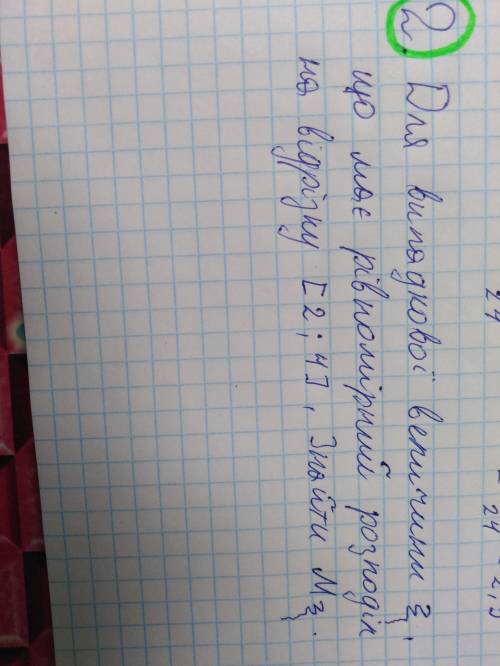 2. Для випадкової величини ξ,
що має рівномірний розподіл
на відрізку [2; 4], Знайти Mξ.
24
24
2,